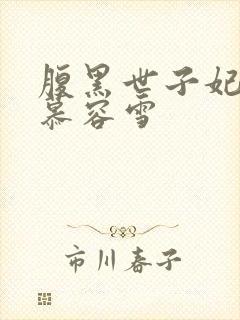 腹黑世子妃
慕容雪
市川春子